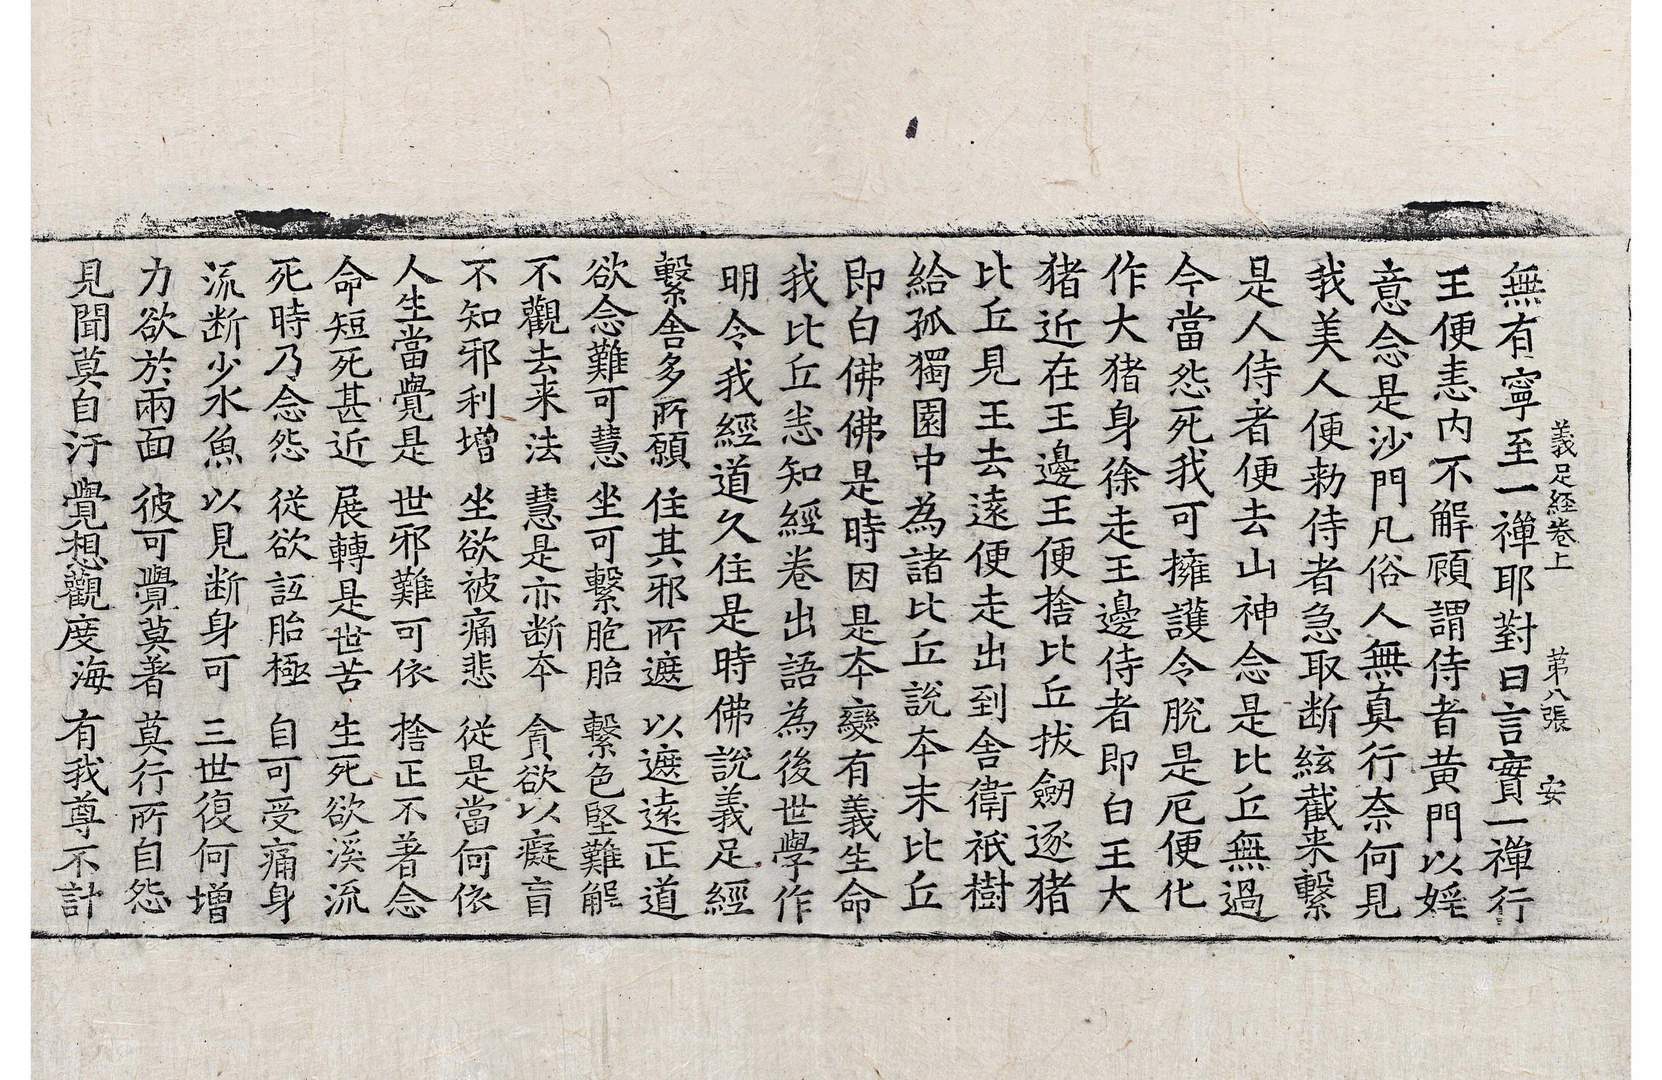 義足經卷上　第八張　安
無有寧至一禪耶對曰言實一禪行
王便恚内不解顧謂侍者黄門以婬
意念是沙門凡俗人無真行奈何見
我美人便勑侍者急取断絃截来繫
是人侍者便去山神念是比丘無過
今當怨死我可擁護令脫是厄便化
作大猪身徐走王邊侍者即白王大
猪近在王邊王便捨比丘拔劒逐猪
比丘見王去遠便走出到舍衛祇樹
給孤獨園中為諸比丘說夲末比丘
即白佛佛是時因是夲變有義生命
我比丘悉知經卷出語為後世學作
明令我經道久住是時佛說義足經
繫舍多所願　住其邪所遮　以遮遠正道
欲念難可慧　坐可繫胞胎　繫色堅難解
不觀去来法　慧是亦断夲　貪欲以癡盲
不知邪利增　坐欲被痛悲　從是當何依
人生當覺是　世邪難可依　捨正不著念
命短死甚近　展轉是世苦　生死欲溪流
死時乃念怨　從欲詆胎極　自可受痛身
流断少水魚　以見断身可　三世復何增
力欲於兩面　彼可覺莫著　莫行所自怨
見聞莫自汙　覺想觀度海　有我尊不計